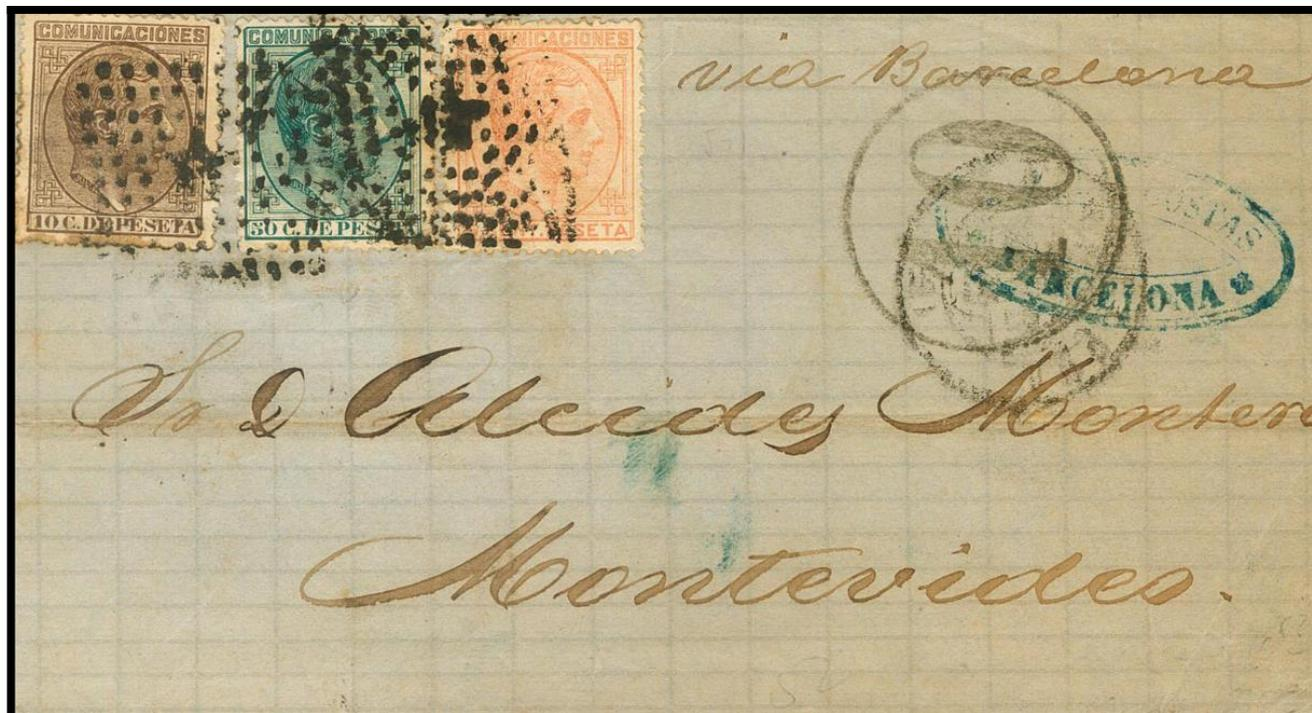 COMUNICACIONES
10 C. DE PESETA
COMUNICACIONES
50 C. DE
COMUNICACIONES
PESETA
via Barcelona
BARCELONA
Sr D Alcides
Montevideo.